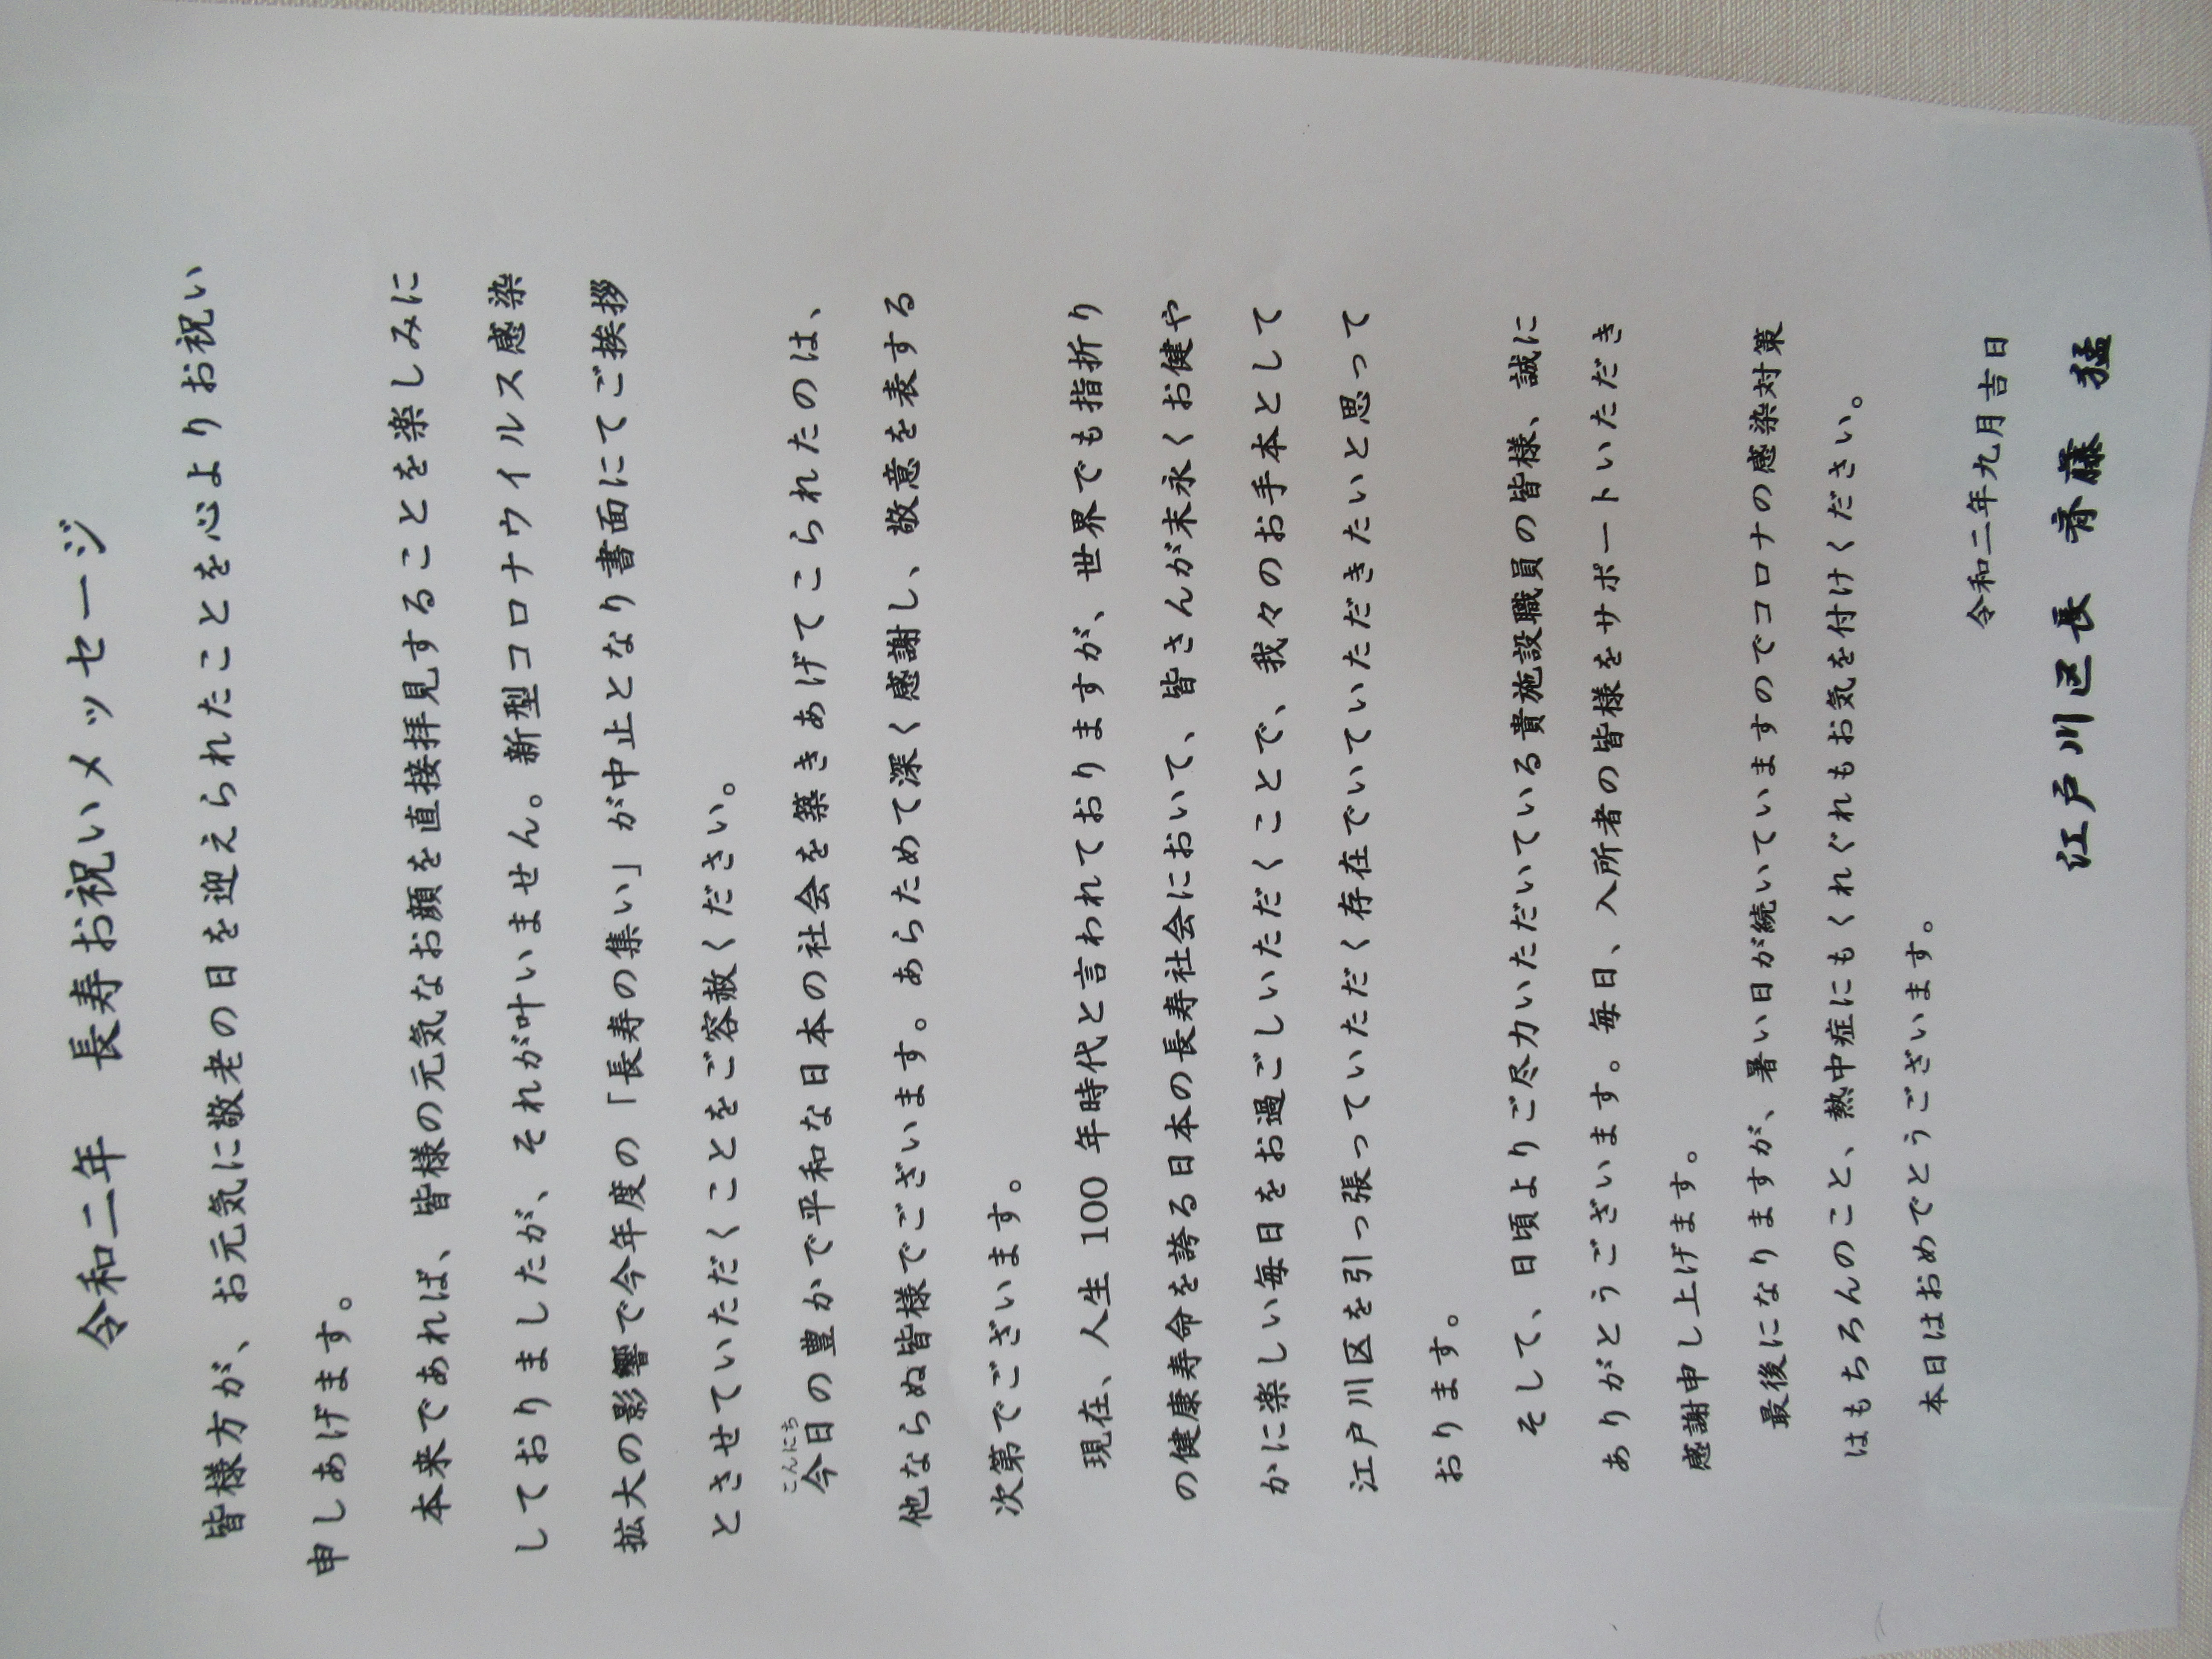 令和二年　長寿お祝いメッセージ
皆様方が、お元気に敬老の日を迎えられたことを心よりお祝い
申しあげます。
本来であれば、皆様の元気なお顔を直接拝見することを楽しみに
しておりましたが、それが叶いません。新型コロナウイルス感染
拡大の影響で今年度の「長寿の集い」が中止となり書面にてご挨拶
とさせていただくことをご容赦ください。
こんにち
今日の豊かで平和な日本の社会を築きあげてこられたのは、
他ならぬ皆様でございます。あらためて深く感謝し、敬意を表する
次第でございます。
現在、人生 100 年時代と言われておりますが、世界でも指折り
の健康寿命を誇る日本の長寿社会において、皆さんが末永くお健や
かに楽しい毎日をお過ごしいただくことで、我々のお手本として
江戸川区を引っ張っていただく存在でいていただきたいと思って
おります。
そして、日頃よりご尽力いただいている貴施設職員の皆様、誠に
ありがとうございます。毎日、入所者の皆様をサポートいただき
感謝申し上げます。
最後になりますが、暑い日が続いていますのでコロナの感染対策
はもちろんのこと、熱中症にもくれぐれもお気を付けください。
本日はおめでとうございます。
令和二年九月吉日
江戸川区長　斉藤　猛